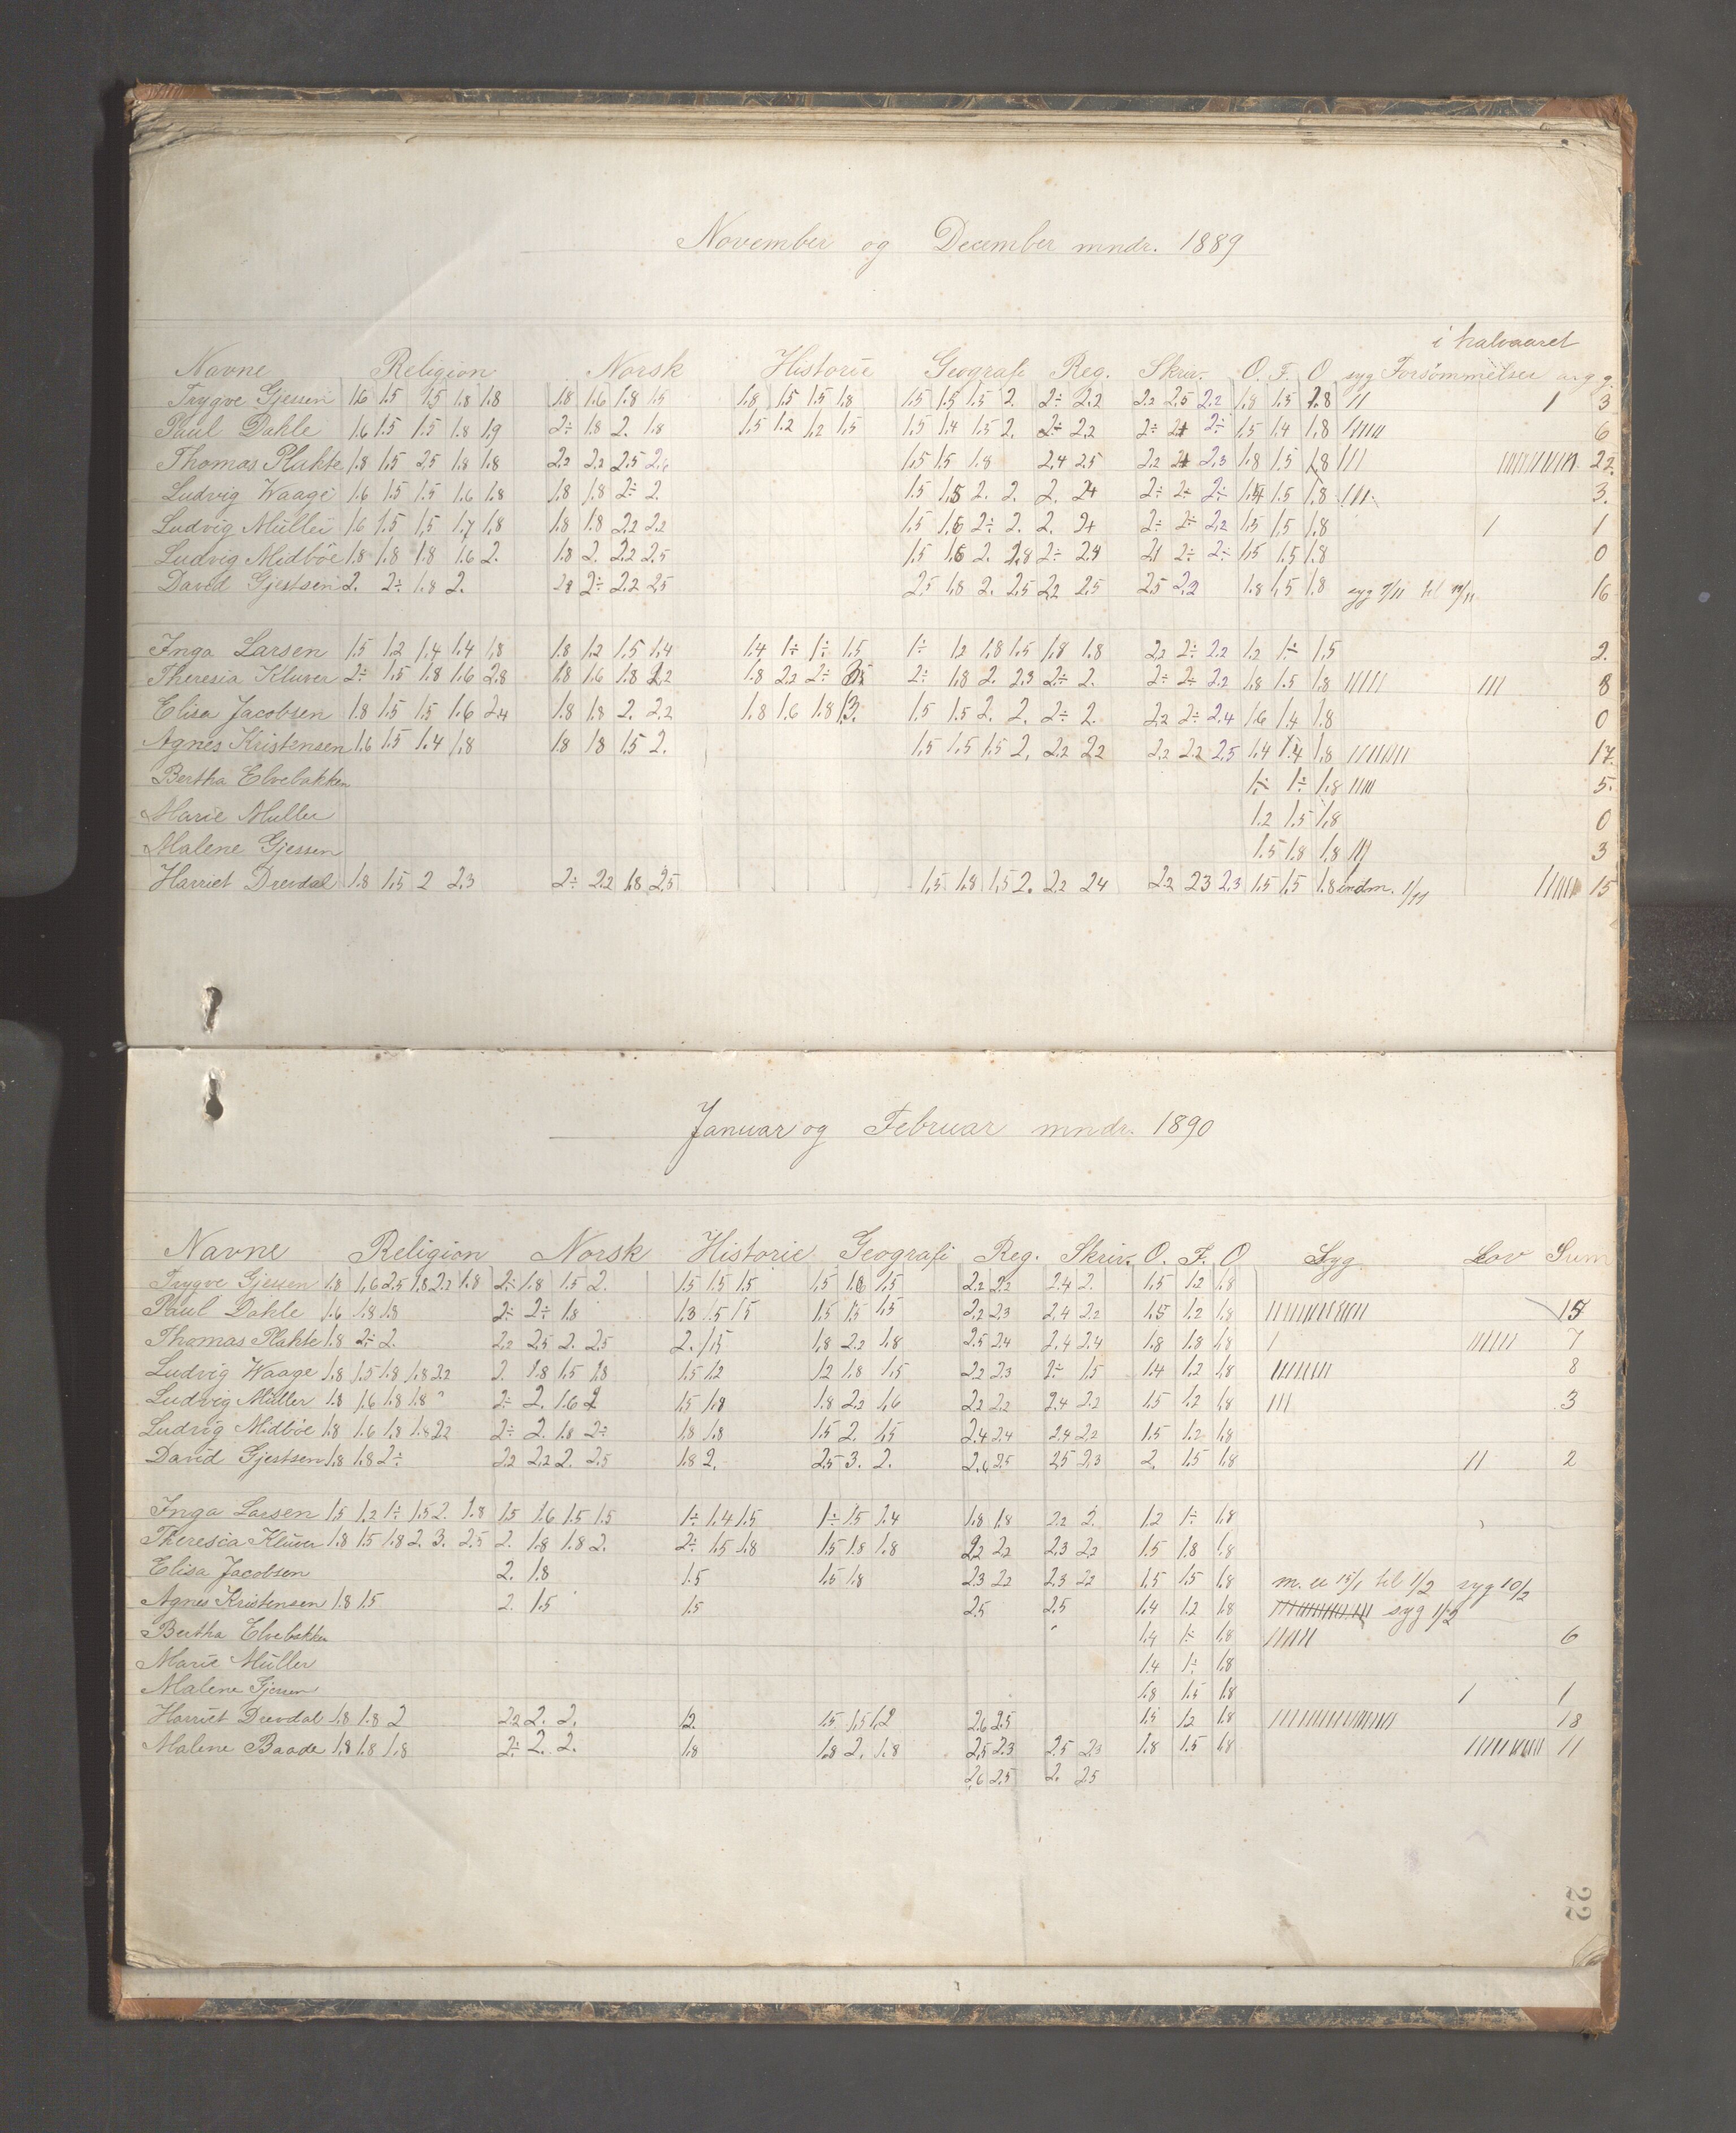 November og December mndr. 1889
i halvaaret
Navne Religion Norsk Historie Geografi Reg. Skriv. O. F. O. syg Forsömmelser
Trygve Gjessen 1.6 1.5 1.5 1.8 1.8 1.8 1.6 1.8 1.5 1.8 1.5 1.5 1.8 1.5 1.5 1.5 2. 2÷ 2.2 2.2 2.5 2.2 1.8 1.5 1.8 11 1 3
Paul Dahle 1.6 1.5 1.5 1.8 1.9 2÷ 1.8 2. 1.8 1.5 1.2 1.2 1.5 1.5 1.4 1.5 2. 2÷ 2.2 2÷ 2÷ 1.5 1.4 1.8 6
Thomas Plukte 1.8 1.5 2.5 1.8 1.8 2.2 2.2 2.5 2.6 1.5 1.5 1.8 2.4 2.5 2.2 2.3 1.8 1.5 1.8 111 22.
Ludvig Waage 1.6 1.5 1.5 1.6 1.8 1.8 1.8 2÷ 2. 1.5 1.5 2. 2. 2. 2+ 2÷ 2÷ 2÷ 1.5 1.8 111 3.
Ludvig Müller 1.6 1.5 1.5 1.7 1.8 1.8 1.8 2.2 2.2 1.5 1.6 2÷ 2. 2. 2+ 2÷ 2÷ 2.2 1.5 1.5 1.8 1 1
Ludvig Midböe 1.8 1.8 1.8 1.6 2. 1.8 2. 2.2 2.5 1.5 1.6 2. 1.8 2÷ 2.4 2.1 2÷ 2÷ 1.5 1.5 1.8 0
David Gjestsen 2. 2÷ 1.8 2. 2.8 2÷ 2.2 2.5 2.5 1.8 2. 2.5 2.2 2.5 2.5 2.2 1.8 1.5 1.8 16
Inga Larsen 1.5 1.2 1.4 1.4 1.8 1.8 1.2 1.5 1.4 1.4 1÷ 1÷ 1.5 1÷ 1.2 1.8 1.5 1.8 1.8 2.2 2÷ 2.2 1.2 1÷ 1.5 2.
Theresia Kluver 2÷ 1.5 1.8 1.6 2.8 1.8 1.6 1.8 2.2 1.8 2.2 2÷ 2÷ 1.8 2. 2.3 2÷ 2. 2÷ 2÷ 2.2 1.8 1.5 1.8 11111 111 8
Elisa Jacobsen 1.8 1.5 1.5 1.6 2.4 1.8 1.8 2. 2.2 1.8 1.6 1.8 1.3. 1.5 1.5 2. 2. 2÷ 2. 2.2 2÷ 2.4 1.6 1.4 1.8 0
Agnes Kristensen 1.6 1.5 1.4 1.8 1.8 1.8 1.5 2. 1.5 1.5 1.5 2. 2.2 2.2 2.2 2.2 2.5 1.4 1.4 1.8 17.
Bertha Elvebakken 1÷ 1÷ 1.8 11111 5.
Marie Muller 1.2 1.5 1.8 0
Malene Gjessen 1.5 1.8 1.8 111 3
Harriet Drevdal 1.8 1.5 2 2.3 2÷ 2.2 1.8 2.5 1.5 1.8 1.5 2. 2.2 2.4 2.2 2.3 2.3 1.5 1.5 1.8 indm. 1/11 15
Januar og Februar mndr. 1890
Navne Religion Norsk Historie Geografi Reg. Skriv. O. F. O Syg Lov Sum
Trygve Gjessen 1.8 1.6 2.5 1.8 2.2 1.8 2÷ 1.8 1.5 2. 1.5 1.5 1.5 1.5 1.6 1.5 2.2 2.2 2.4 2. 1.5 1.2 1.8
Paul Dahle 1.6 1.8 1.8 2÷ 2÷ 1.8 1.3 1.5 1.5 1.5 1.5 1.5 2.2 2.3 2.4 2.2 1.5 1.2 1.8 15
Thomas Plukte 1.8 2÷ 2. 2.2 2.5 2. 2.5 2. 1.5 1.8 2.2 1.8 2.5 2.4 2.4 2.4 1.8 1.8 1.8 1 7
Ludvig Waage 1.8 1.5 1.8 1.8 2.2 2. 1.8 1.5 1.8 1.5 1.2 1.2 1.8 1.5 2.2 2.3 2÷ 1.5 1.4 1.2 1.8 11111111 8
Ludvig Müller 1.8 1.6 1.8 1.8 2÷ 2. 1.6 2 1.5 1.8 1.8 2.2 1.6 2.2 2.2 2.4 2.2 1.5 1.2 1.8 111 3
Ludvig Midböe 1.8 1.6 1.8 1.8 2.2 2÷ 2. 1.8 2÷ 1.8 1.8 1.5 2. 1.5 2.4 2.4 2.4 2.2 1.5 1.2 1.8
David Gjestsen 1.8 1.8 2÷ 2.2 2.2 2. 2.5 1.8 2. 2.5 3. 2. 2.6 2.5 2.5 2.3 2. 1.5 1.8 11 2
Inga Larsen 1.5 1.2 1÷ 1.5 2. 1.8 1.5 1.6 1.5 1.5 1÷ 1.4 1.5 1÷ 1.5 1.4 1.8 1.8 2.2 2. 1.2 1÷ 1.8
Theresia Klüver 1.8 1.5 1.8 2. 3. 2.5 2. 1.8 1.8 2. 2÷ 1.5 1.8 1.5 1.8 1.8 2.2 2.2 2.3 2.2 1.5 1.8 1.8
Elisa Jacobsen 2. 1.8 1.5 1.5 1.8 2.3 2.2 2.3 2.2 1.5 1.5 1.8 15/1 til 1/2 syg 10/2
Agnes Kristensen 1.8 1.5 2. 1.5 1.5 2.5 2.5 1.4 1.2 1.8 syg 1/2
Bertha Elvebakken 1.4 1÷ 1.8 111111 6
Marie Müller 1.4 1÷ 1.8
Malene Gjessen 1.8 1.5 1.8 1 1
Harriet Drevdal 1.8 1.8 2 2.2 2. 2. 1.2. 1.5 1.5 1.2 2.6 2.5 1.5 1.2 1.8 18
Malene Baade 1.8 1.8 1.8 2÷ 2. 2. 1.8 1.8 2. 1.8 2.5 2.3 2.5 2.3 1.8 1.5 1.8 11
2.6 2.5 2. 2.5
22